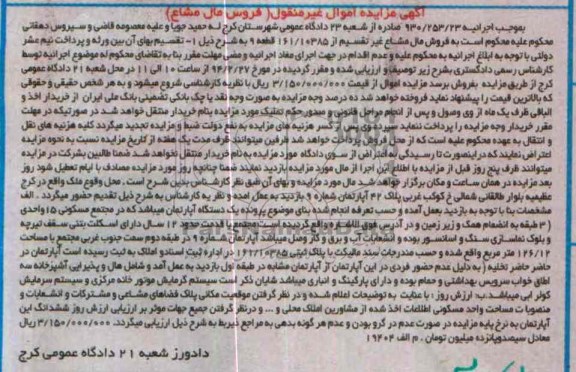 آگهی مزایده اموال غیرمنقول( فروش مال مشاع)
بموجب اجرائیه ۹۳۰/۲۵۳/۲۳ صادره از شعبه ۲۳ دادگاه عمومی شهرستان کرج له حمید جویا و علیه معصومه قاضی و سیروس دهقانی
محکوم علیه محکوم است به فروش مال مشاع غیر تقسیم از ۱۶۱/۱۰۳۸۵ قطعه ۹ به شرح ذیل ۱- تقسیم بهای آن بین ورثه و پرداخت نیم عشر
دولتی با توجه به ابلاغ اجرائیه به محکوم علیه و عدم اقدام در جهت اجرای مفاد اجرائیه و مضی مهلت مقرر بنا به تقاضای محکوم له موضوع اجرائیه توسط
کارشناس رسمی دادگستری بشرح زیر توصیف و ارزیابی شده و مقرر گردیده در مورخ ۹۴/۲/۲۷ از ساعت ۱۰ الی ۱۱ در محل شعبه ۲۱ دادگاه عمومی
کرج از طریق مزایده بفروش برسد مزایده اموال از قیمت ۳/۱۵۰/۰۰۰/۰۰۰ ریال با نظریه کارشناسی شروع میشود و به هر شخص حقیقی و حقوقی
که بالاترین قیمت را پیشنهاد نماید فروخته خواهد شد ده درصد وجه مزایده به صورت وجه نقد یا چک بانکی تضمینی بانک ملی ایران از خریدار اخذ و
الباقی ظرف یک ماه از وی وصول و پس از انجام مراحل قانونی و صدور حکم تملیک مورد مزایده بنام خریدار منتقل خواهد شد در صورتیکه در مهلت
مقرر خریدار وجه مزایده را پرداخت ننماید سپرده وی پس از کسر هزینه های مزایده به نفع دولت ضبط و مزایده تجدید میگردد کلیه هزینه های نقل
و انتقال به عهده محکوم علیه است که از محل فروش پرداخت خواهد شد طرفین میتوانند ظرف مدت یک هفته از تاریخ مزایده نسبت به نحوه مزایده
اعتراض نمایند که در اینصورت تا رسیدگی به اعتراض از سوی دادگاه مورد مزایده به نام خریدار منتقل نخواهد شد ضمنا طالبین بشرکت در مزایده
میتوانند ظرف پنج روز قبل از مزایده با اطلاع این اجرا از مال مورد مزایده بازدید نمایند ضمنا چنانچه روز مورد مزایده مصادف با ایام تعطیل شود روز
بعد مزایده در همان ساعت و مکان برگزار خواهد شد مال مورد مزایده و بهای آن طبق نظر کارشناس بدین شرح است . محل وقوع ملک واقع در کرج
عظیمیه بلوار طالقانی شمالی خ کوکب غربی پلاک ۴۲ آپارتمان شماره ۹ بازدید به عمل آمده و نظریه کارشناس به شرح ذیل تقدیم حضور میگردد . الف
مشخصات بنا با توجه به بازدید بعمل آمده و حسب تعرفه انجام شده بنای موضوع پرونده یک دستگاه آپارتمان میباشد که در مجتمع مسکونی ۱۵ واحدی
( ۳ طبقه به انضمام همک و زیر زمین و در آدرس فوق الاشاره واقع گردیده است مجتمع با قدمت حدود ۱۲ سال دارای اسکلت بتنی سقف تیرچه
و بلوک نماسازی سنگ و آسانسور بوده و انشعابات آب و برق و گاز وصل میباشد آپارتمان شماره ۹ در طبقه دوم سمت جنوب غربی مجتمع با مساحت
۱۲۶/۱۲ متر مربع واقع شده و حسب مندرجات سند مالکیت با پلاک ثبتی ۱۶۱/۱۰۳۸۵ در اداره ثبت اسناد و املاک به ثبت رسیده است آپارتمان در
حاضر حاضر تخلیه ( به دلیل عدم حضور فردی در این آپارتمان از آپارتمان مشابه در طبقه اول بازدید به عمل آمد و شامل هال و پذیرایی آشپزخانه سه
اطاق خواب سرویس بهداشتی و حمام بوده و دارای پارکینگ و انباری میباشد شایان ذکر است سیستم گرمایش موتور خانه مرکزی و سیستم سرمایش
کولر آبی میباشد.ب- ارزش روز : با عنایت به توضیحات اعلام شده و در نظر گرفتن موقعیت مکانی پلاک فضاهای مشاعی و مشترکات و انشعابات و
منصوبات مساحت واحد مسکونی اطلاعات اخذ شده از مشاورین املاک محلی و ... و درنظر گرفتن جمیع جهات موثر بر ارزیابی ارزش روز ششدانگ این
آپارتمان به نرخ پایه مزایده در صورت عدم در گرو بودن و عدم هر گونه بدهی به مراجع ذیربط به شرح ذیل ارزیابی میگردد. ۳/۱۵۰/۰۰۰/۰۰۰ ریال
معادل سیصدوپانزده میلیون تومان . م الف ۱۹۴۰۴
دادورز شعبه ۲۱ دادگاه عمومی کرج